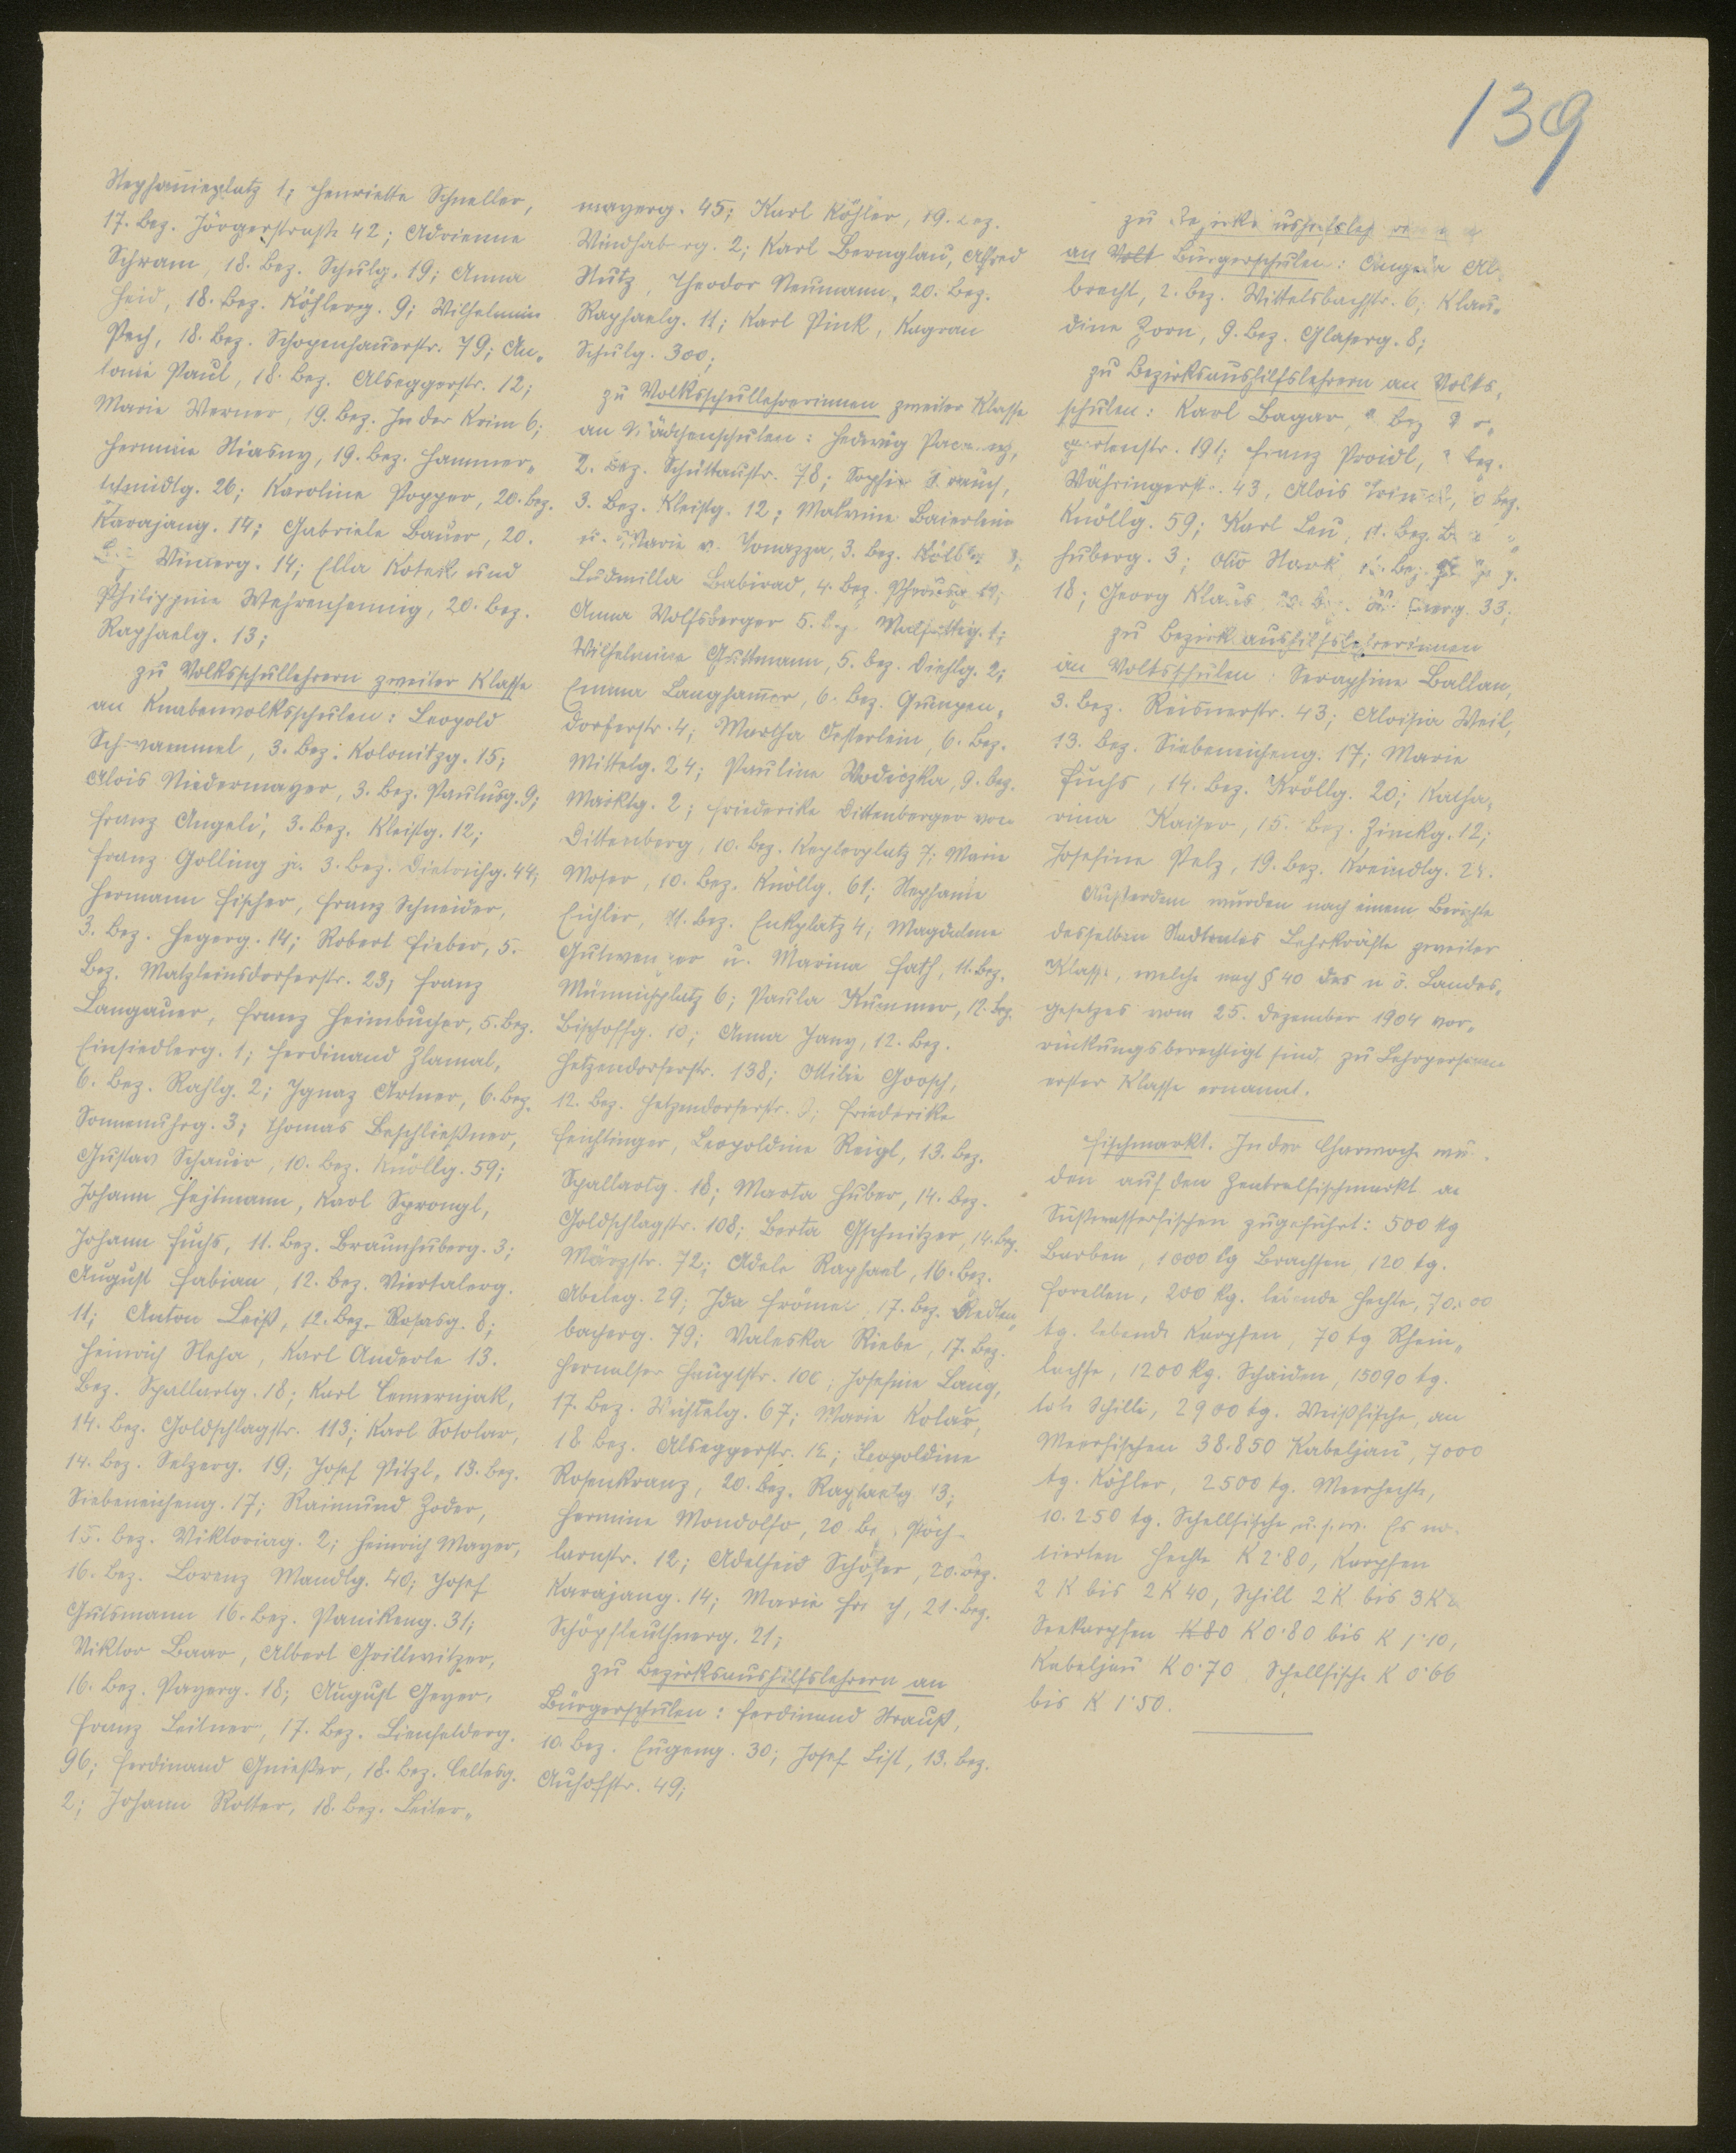 139
Stephanieplatz 1; Henriette Schneller,
17. Bez. Jörgerstraße 42; Adrienne
Schram, 18. Bez. Schulg. 19; Anna
Heid, 18. Bez. Köhlerg. 9; Wilhelmine
Pech, 18. Bez. Schopenhauerstr. 79; An„
tonie Paul, 18. Bez. Alseggerstr. 12;
Marie Werner, 19. Bez. In der Krim 6;
Hermine Stiasny, 19. Bez. Hammer„
schmidtg. 26; Karoline Popper, 20. Bez.
Karajang. 14; Gabriele Bauer, 20.
Bez. Winterg. 14; Ella Kotek und
Philippine Wehrenfennig, 20. Bez.
Raphaelg. 13;
zu Volksschullehrern zweiter Klasse
an Knabenvolksschulen: Leopold
Schwammel, 3. Bez. Kolonitzg. 15;
Alois Niedermayer, 3. Bez. Paulusg. 9;
Franz Angeli, 3. Bez. Kleistg. 12;
Franz Golling jr. 3. Bez. Dietrichg. 44;
Hermann Fischer, Franz Schneider,
3. Bez. Hegerg. 14; Robert Fieber, 5.
Bez. Matzleinsdorferstr. 23; Franz
Langauer, Franz Heimbucher, 5. Bez.
Einsiedlerg. 1; Ferdinand Zlamal,
6. Bez. Rahlg. 2; Ignaz Artner, 6. Bez.
Sonnenuhrg. 3; Thomas Beschließner,
Gustav Schauer, 10. Bez. Knöllg. 59;
Johann Hejtmann, Karl Sprongl,
Johann Fuchs, 11. Bez. Braunhuberg. 3;
August Fabian, 12. Bez. Viertalerg.
11; Anton Leiß, 12. Bez. Rosasg. 8;
Heinrich Sleha, Karl Anderle 13.
Bez. Spallartg. 18; Karl Cemernjak,
14. Bez. Goldschlagstr. 113; Karl Sotolar,
14. Bez. Selzerg. 19; Josef Pitzl, 13. Bez.
Siebeneicheng. 17; Raimund Zoder,
15. Bez. Viktoriag. 2; Heinrich Mayer,
16. Bez. Lorenz Mandlg. 40; Josef
Gutsmann 16. Bez. Panikeng. 31;
Viktor Baar, Albert Grillwitzer,
16. Bez. Payerg. 18; August Geyer,
Franz Leitner, 17. Bez. Lienfelderg.
96; Ferdinand Gnießer, 18. Bez. Celtesg.
2; Johann Rotter, 18. Bez. Leiter„
mayerg. 45; Karl Köhler, 19. Bez.
Windhaberg. 2; Karl Bernglau, Alfred
Nutz, Theodor Neumann, 20. Bez.
Raphaelg. 11; Karl Pink, Kagran
Schulg. 300;
zu Volksschullehrerinnen zweiter Klasse
an Mädchenschulen: Hedwig
2. Bez. Schüttaustr. 78; Sophie
3. Bez. Kleistg. 12; Malvine Baierlein
u. Marie v. Tonazza, 3. Bez.
Ludmilla Babirad, 4. Bez. 19;
Anna Wolfsberger 5. Bez. Malfattig. 1;
Wilhelmine Guttmann, 5. Bez. Diehlg. 2;
Emma Langhammer, 6. Bez. Gumpen„
dorferstr. 4; Martha Osterlein, 6. Bez.
Mittelg. 24; Pauline Wodiczka, 9. Bez.
Marktg. 2; Friederike Dittenberger von
Dittenberg, 10. Bez. Keplerplatz 7; Marie
Moser, 10. Bez. Knöllg. 61; Stephanie
Eichler, 11. Bez. Enkplatz 4; Magdalene
Gutwenger u. Marina Fath, 11. Bez.
Münnichplatz 6; Paula Kummer, 12. Bez.
Bischoffg. 10; Anna Jany, 12. Bez.
Hetzendorferstr. 138; Ottilie Goosch,
12. Bez. Hetzendorferstr. Friederike
Feichtinger, Leopoldine Reigl, 13. Bez.
Spallartg. 18; Marta Huber, 14. Bez.
Goldschlagstr. 108; Berta Gschnitzer, 14. Bez.
Märzstr. 72; Adele Raphael, 16. Bez.
Abeleg. 29; Ida Frömel, 17. Bez. Redten„
bacherg. 79; Valeska Riebe, 17. Bez.
Hernalser Hauptstr. 100; Josefine Lang,
17. Bez. Wichtelg. 67; Marie Kolar,
18 Bez. Alseggerstr. 12; Leopoldine
Rosenkranz, 20. Bez. Raphaelg. 13;
Hermine Mondolfo, 20 Bez. Pöch„
larnstr. 12; Adelheid Schöfer, 20. Bez.
Karajang. 14; Marie 21. Bez.
Schöpfleuthnerg. 21;
zu Bezirksaushilfslehrern an
Bürgerschulen: Ferdinand Strauß,
10. Bez. Eugeng. 30; Josef List, 13. Bez.
Auhofstr. 49;
zu Bezirksaushilfslehrerinnen
an Volk Bürgerschulen: Angela Al„
brecht, 2. Bez. Wittelsbachstr. 6; Klau„
dine Zorn, 9. Bez. Glaserg. 8;
zu Bezirksaushilfslehrern an Volks„
schulen: Karl Bagar, Bez.
gartenstr. 191; Franz Proidl, Bez.
Währingerstr. 43, Alois Bez.
Knöllg. 59; Karl Leu, 11. Bez.
huberg. 3; Otto Bez.
18; Georg Klaus 33;
zu Bezirksaushilfslehrerinnen
an Volksschulen: Seraphine Ballan,
3. Bez. Reisnerstr. 43; Aloisia Weil,
13. Bez. Siebeneicheng. 17; Marie
Fuchs, 14. Bez. Kröllg. 20; Katha„
rina Kaiser, 15. Bez. Zinckg. 12;
Josefine Pelz, 19. Bez. Kreindlg.
Außerdem wurden nach einem Berichte
desselben Stadtrates Lehrkräfte zweiter
Klasse, welche nach § 40 des n ö. Landes„
gesetzes vom 25. Dezember 1904 vor„
rückungsberechtigt sind, zu Lehrpersonen
erster Klasse ernannt.
Fischmarkt. In der Charwoche wur„
den auf den Zentralfischmarkt an
Süßwasserfischen zugeführt: 500 kg
Barben, 1000 kg Brachsen, 120 kg.
Forellen, 200 kg. lebende Hechte,
kg. lebende Karpfen, 70 kg Rhein„
lachse, 1200 kg. Schaiden, 15090 kg.
tote Schille, 2900 kg. Weißfische, an
Meerfischen 38.850 Kabeljau, 7000
kg. Köhler, 2500 kg. Meerhechte,
10.250 kg. Schellfische u. s. w. Es no„
tierten Hechte K 2·80, Karpfen
2 K bis 2 K 40, Schill 2 K bis 3 K
Seekarpfen K 80 K 0·80 bis K 1·10,
Kabeljau K 0·70 Schellfische K 0·66
bis K 1·50.